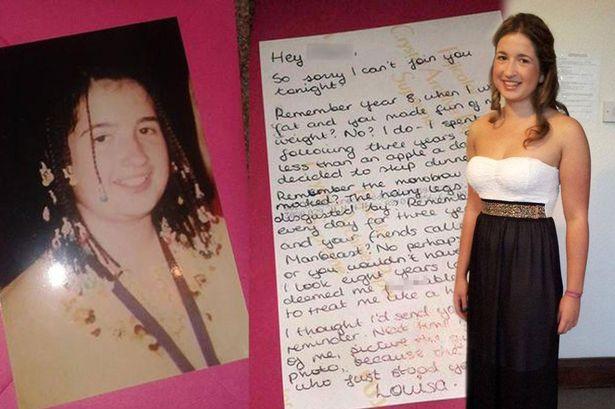 Hey
So sorry I can't join you
tonight.
Remember year 8, when I w
fat and you made fun of m
weight? No? I do - I spent
following three years
less than an apple a da
decided to skip dinne
Remember the monobrow
mocked? The hairy legs
disgusted by? Remembe
every day for three ye
and your friends calle
Manbeast? No, perhap
or you wouldn't have
I look eight years la
deemed me
to treat me like a
I thought I'd send yo
reminder. Next time
of me, picture the
photo, because the
who just stood yo
Louisa.